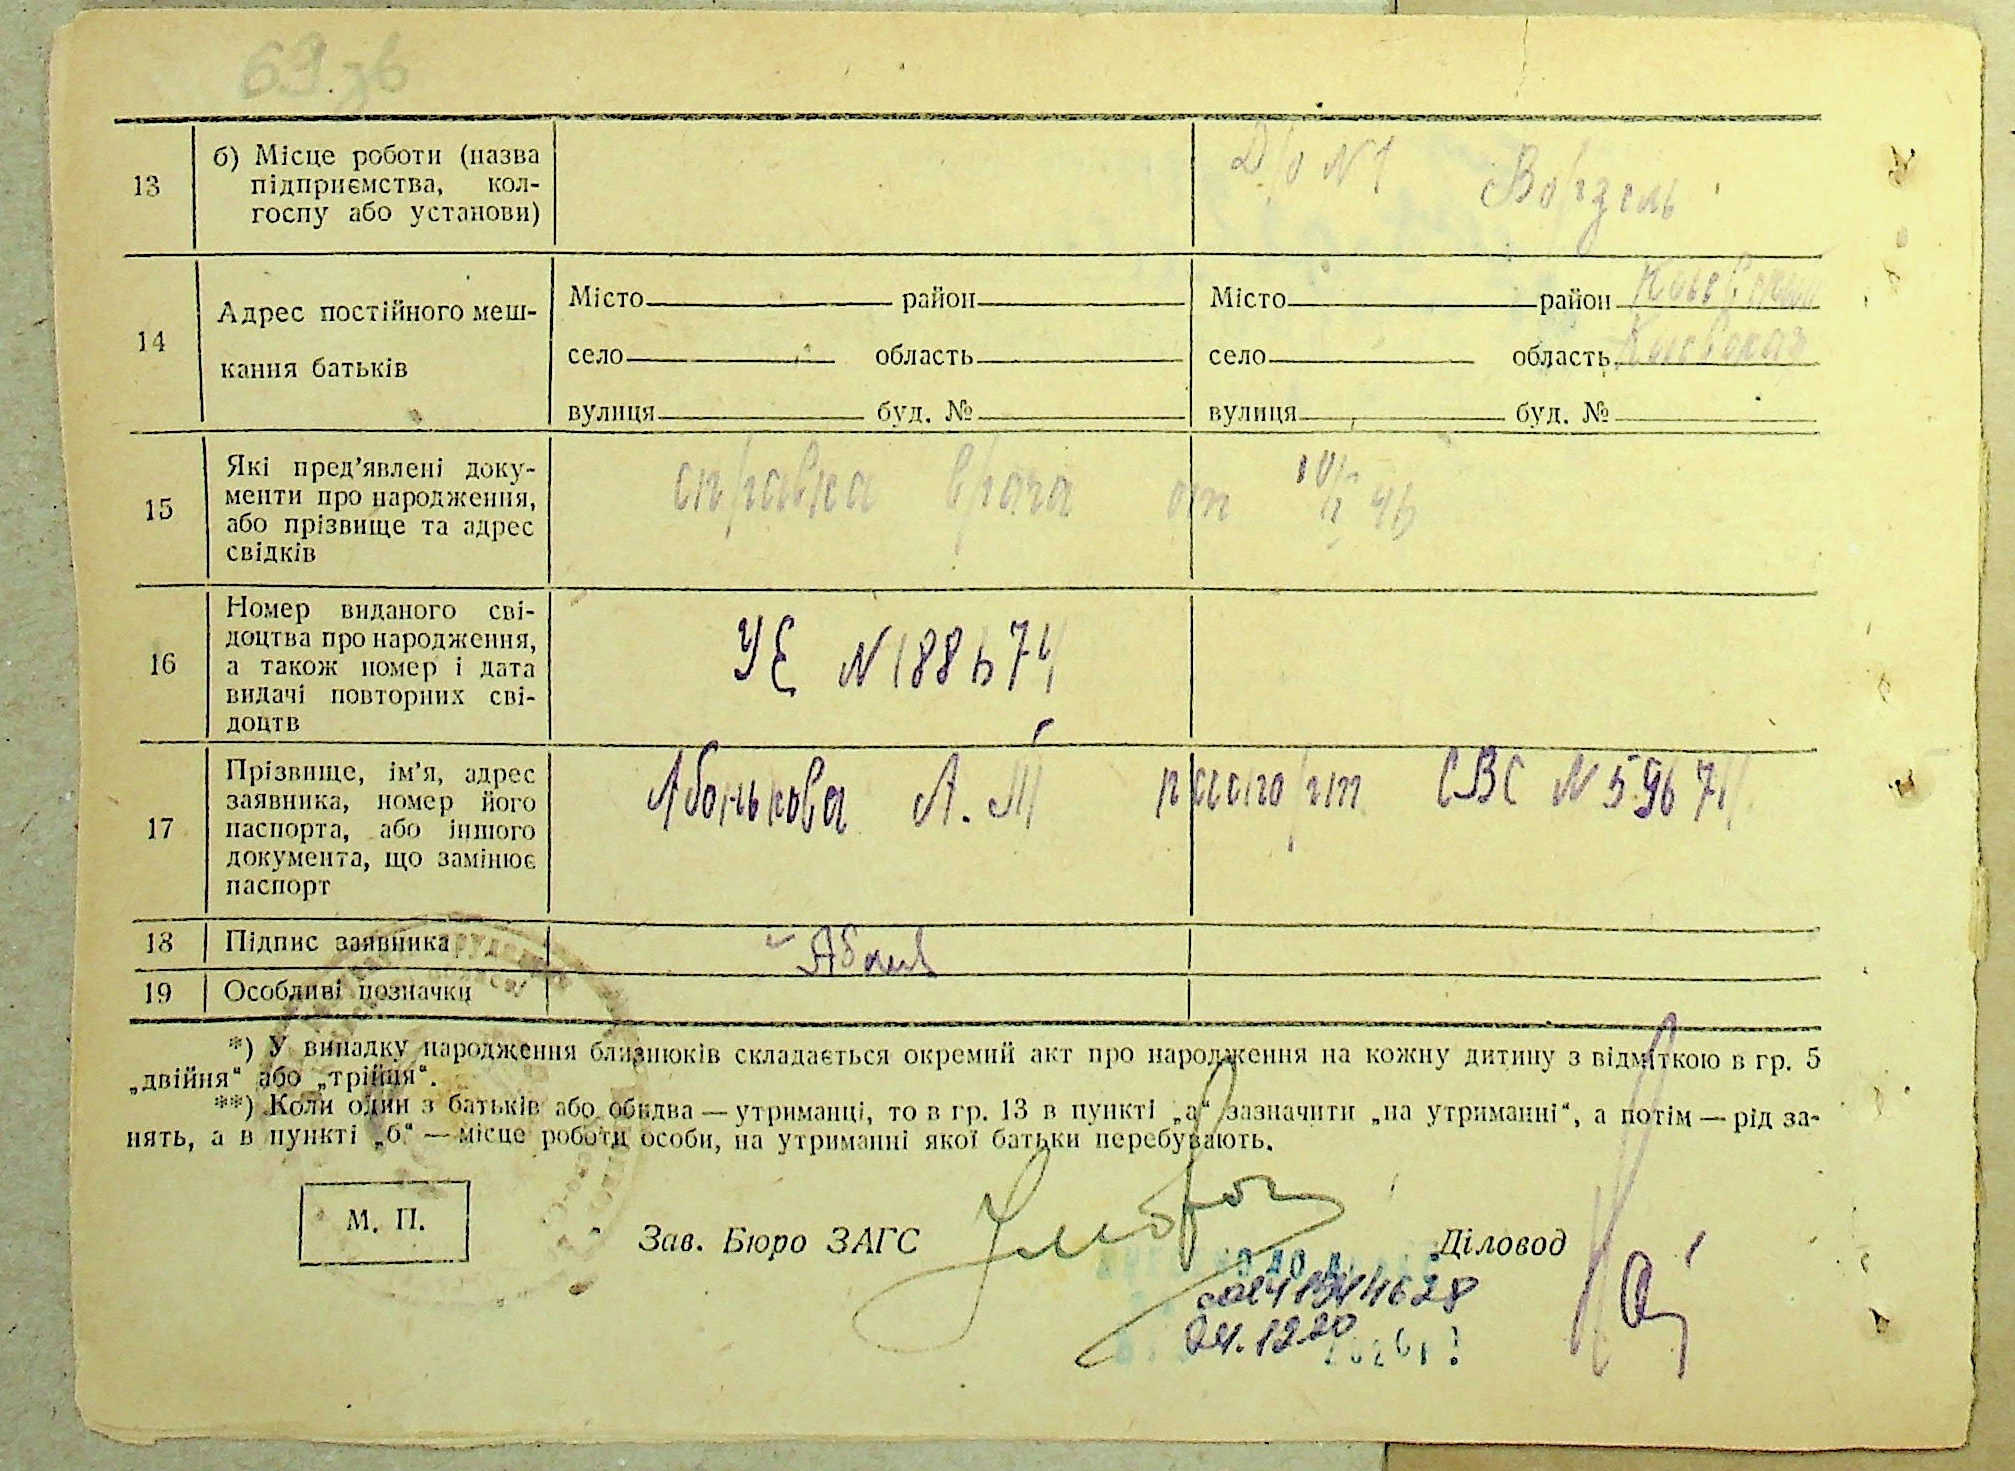 69 зв
13
б) Місце роботи (назва
підприємства, кол-
госпу або установи)
Д/о N 1 Ворзель
14
Адрес постійного меш-
кання батьків
Місто район
село область
вулиця буд. №
Місто район
село область Киевская
вулиця буд. №
15
Які пред’явлені доку-
менти про народження,
або прізвище та адрес
свідків
справка врача от
16
Номер виданого сві-
доцтва про народження,
а також номер і дата
видачі повторних сві-
доцтв
УЕ N 188674
17
Прізвище, ім’я, адрес
заявника, номер його
паспорта, або іншого
документа, що замінює
паспорт
Абонькова А. М паспорт СВС N 59671
18
Підпис заявника
19
Особливі позначки
*) У випадку народження близнюків складається окремий акт про народження на кожну дитину з відміткою в гр. 5
„двійня“ або „трійця“.
**) Коли один з батьків або обидва — утриманці, то в гр. 13 в пункті „а“ зазначити „на утриманні“, а потім — рід за-
нять, а в пункті „б“ — місце роботи особи, на утриманні якої батьки перебувають.
М. П.
Зав. Бюро ЗАГС
Діловод
24.12.20